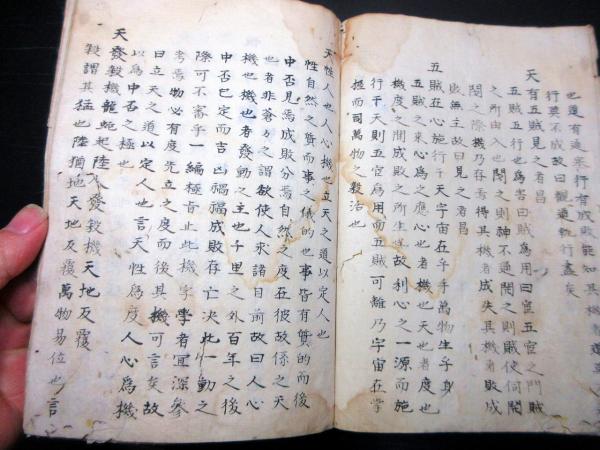 也道有通塞行有成敗能知其機者道無
行莫不成故曰觀道執行盡矣
天有五賊見之者昌
五賊五行也為害曰賊為用曰官五官之門賊
之所由入也閉之則神不通開之則賊使伺閉
閉之際機乃存焉得其機者成失其機者敗成
敗無主故曰見之者昌
五賊在心施行于天宇宙在乎手萬物生乎身
五賊之來心為之應心也者機也天也者度也
機度之間成敗之所生也故利心之一源而施
行于天則五官為用而五賊可離乃宇宙在掌
握而司萬物之數治也
天性人也人心機也立天之道以定人也
性自然之質而事之儀的也事皆有質的而後
中否見焉成敗分焉自然之度在彼故係之天
也者非蒼々之謂欲使人求諸目前故曰人心
機也機也者發動之主也千里之外百年之後
中否已定而吉凶禍福成敗存亡決此一動之
際可不審乎一編極旨止此機字學者宜深參
考焉物必有度先立之度而後其機可言矣故
曰立天之道以定人也言天性為度人心為機
以為中否之極也
天發殺機龍蛇起陸人發殺機天地反覆
殺謂其猛也陸猶地天地反覆萬物易位也言